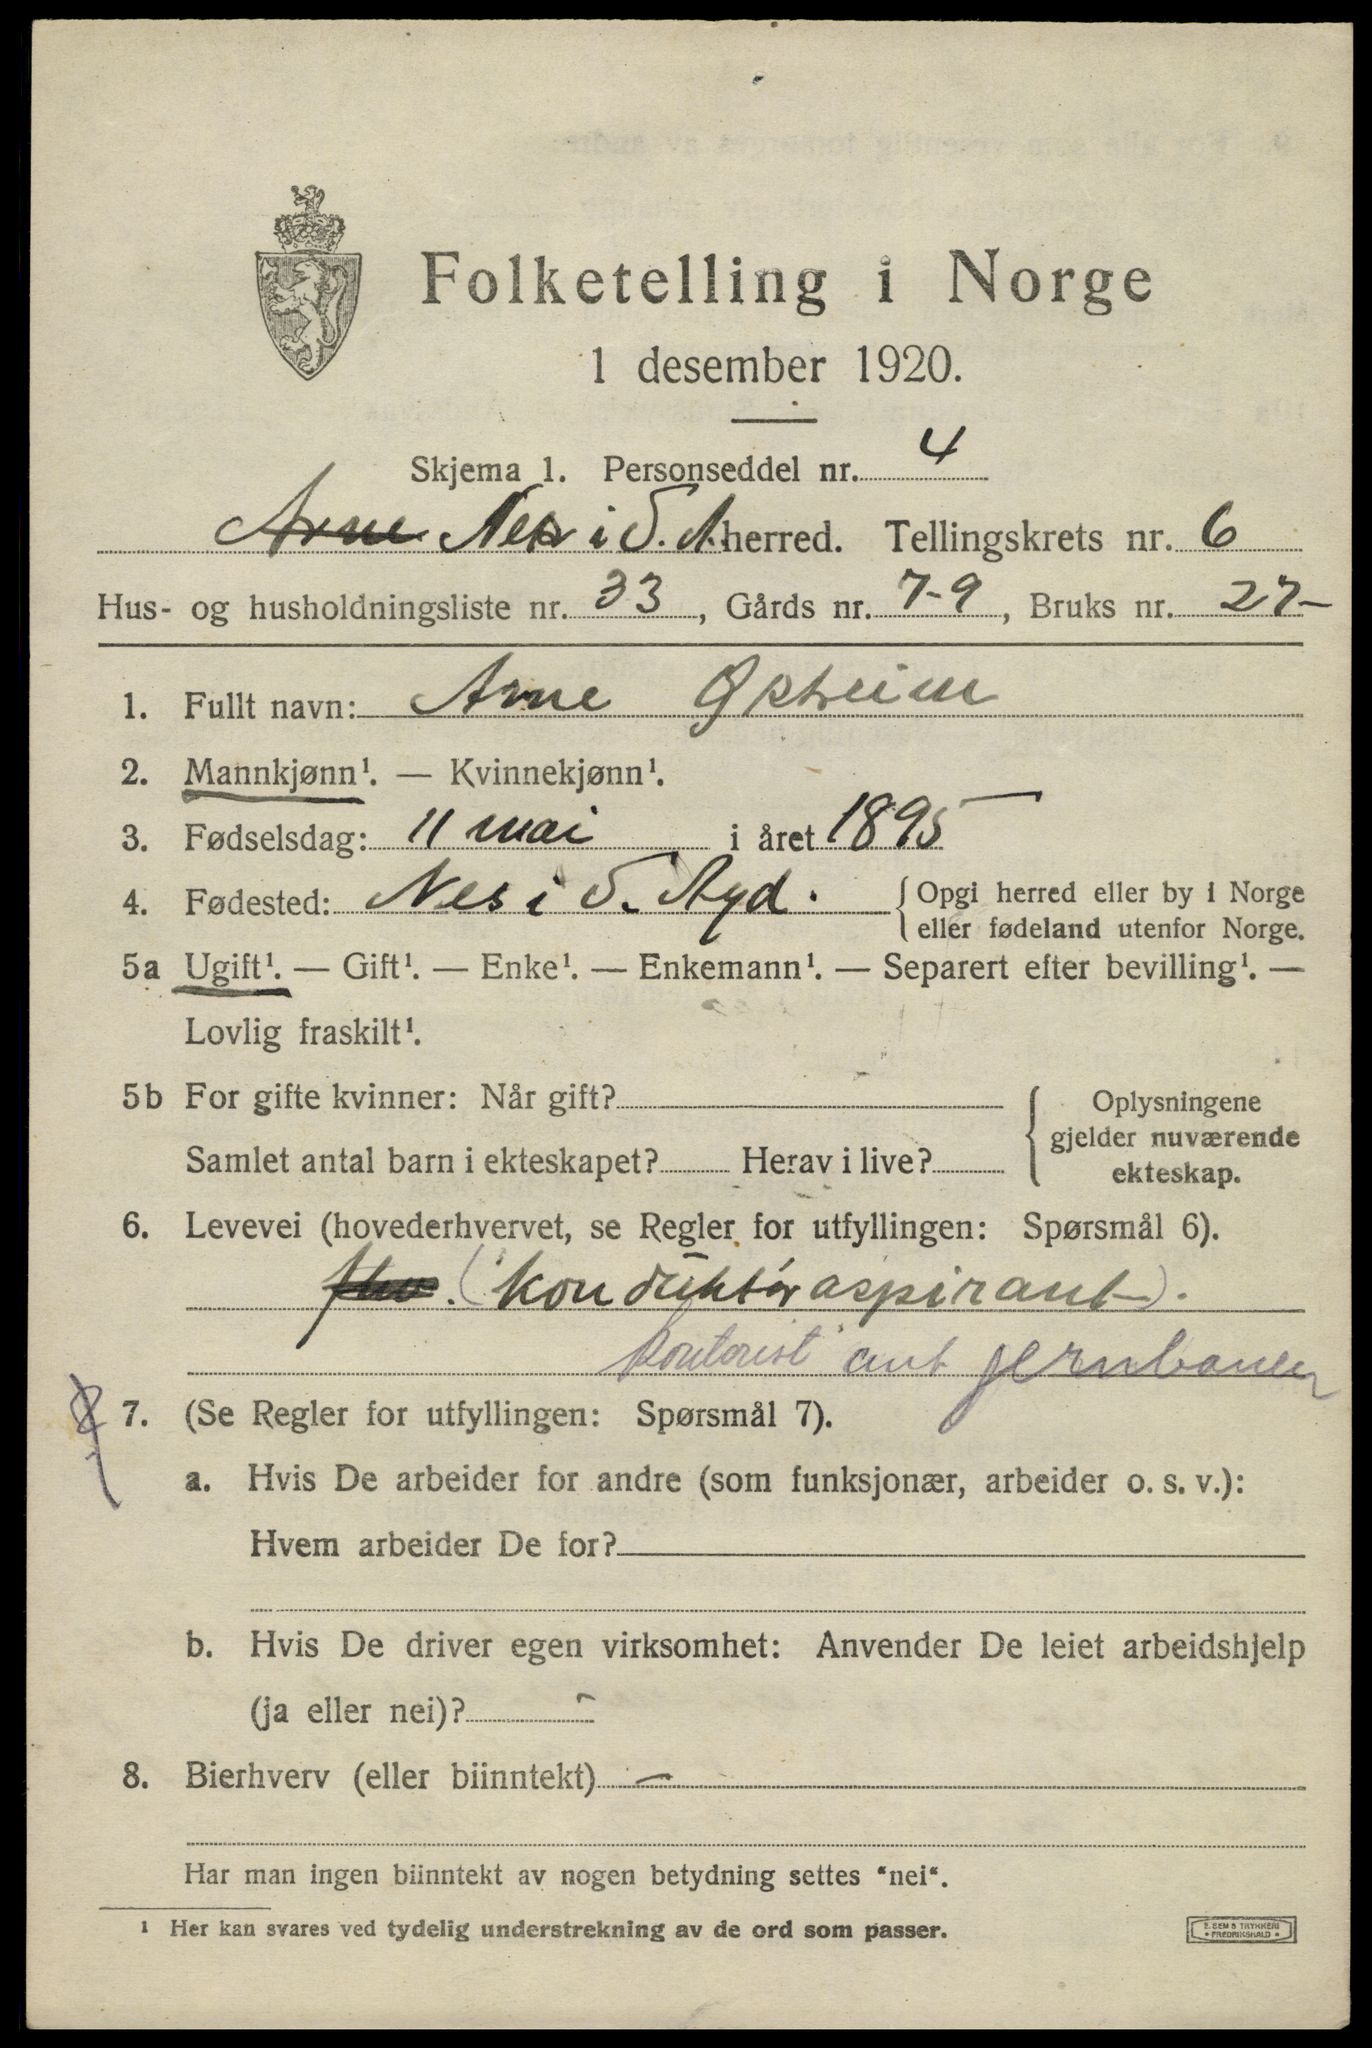 Folketelling i Norge
1 desember 1920.
Skjema 1. Personseddel nr. 4
Arne Nes i S. A. herred. Tellingskrets nr. 6
Hus- og husholdningsliste nr. 33, Gårds nr. 7-9, Bruks nr. 27-
1. Fullt navn: Arne Øxheim
2. Mannkjønn¹. — Kvinnekjønn¹.
3. Fødselsdag: 11 mai i året 1895
4. Fødested: Nes i S. Ayd. { Opgi herred eller by i Norge
eller fødeland utenfor Norge.
5a Ugift¹. — Gift¹. — Enke¹. — Enkemann¹. — Separert efter bevilling¹. —
Lovlig fraskilt¹.
5b For gifte kvinner: Når gift? { Oplysningene
gjelder nuværende
Samlet antal barn i ekteskapet? Herav i live? ekteskap.
6. Levevei (hovederhvervet, se Regler for utfyllingen: Spørsmål 6).
(konduktøraspirant).
kontorist jernbanen
7. (Se Regler for utfyllingen: Spørsmål 7).
a. Hvis De arbeider for andre (som funksjonær, arbeider o. s. v.):
Hvem arbeider De for?
b. Hvis De driver egen virksomhet: Anvender De leiet arbeidshjelp
(ja eller nei)? -
8. Bierhverv (eller biinntekt) —
Har man ingen biinntekt av nogen betydning settes "nei".
¹ Her kan svares ved tydelig understrekning av de ord som passer.
E. SEMS TRYKKERI
FREDRIKSHALD